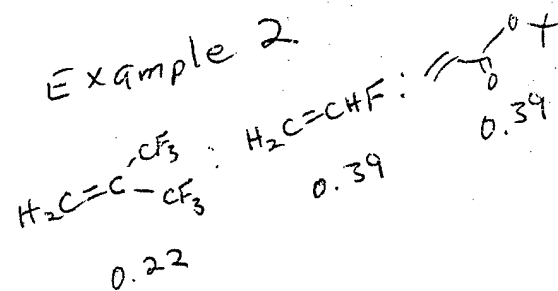 Example 2
H2C=C-CF3 : H2C=CHF : O
CF3 O
0.22 0.39 0.39